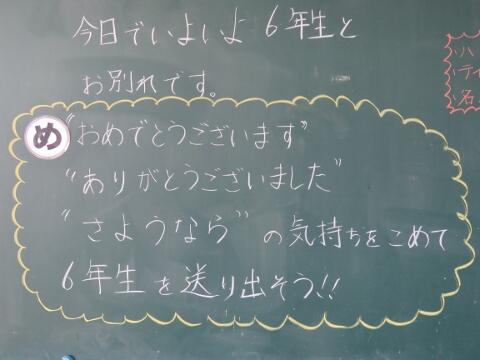 今日でいよいよ6年生と
お別れです。
め
"おめでとうございます"
"ありがとうございました"
"さようなら"の気持ちをこめて
6年生を送り出そう!!
ハ
ティ
名